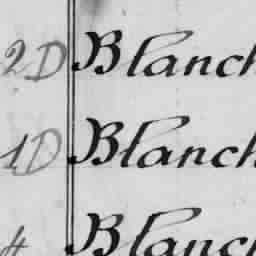 2D Blanch
1D Blanch
4 Blanch